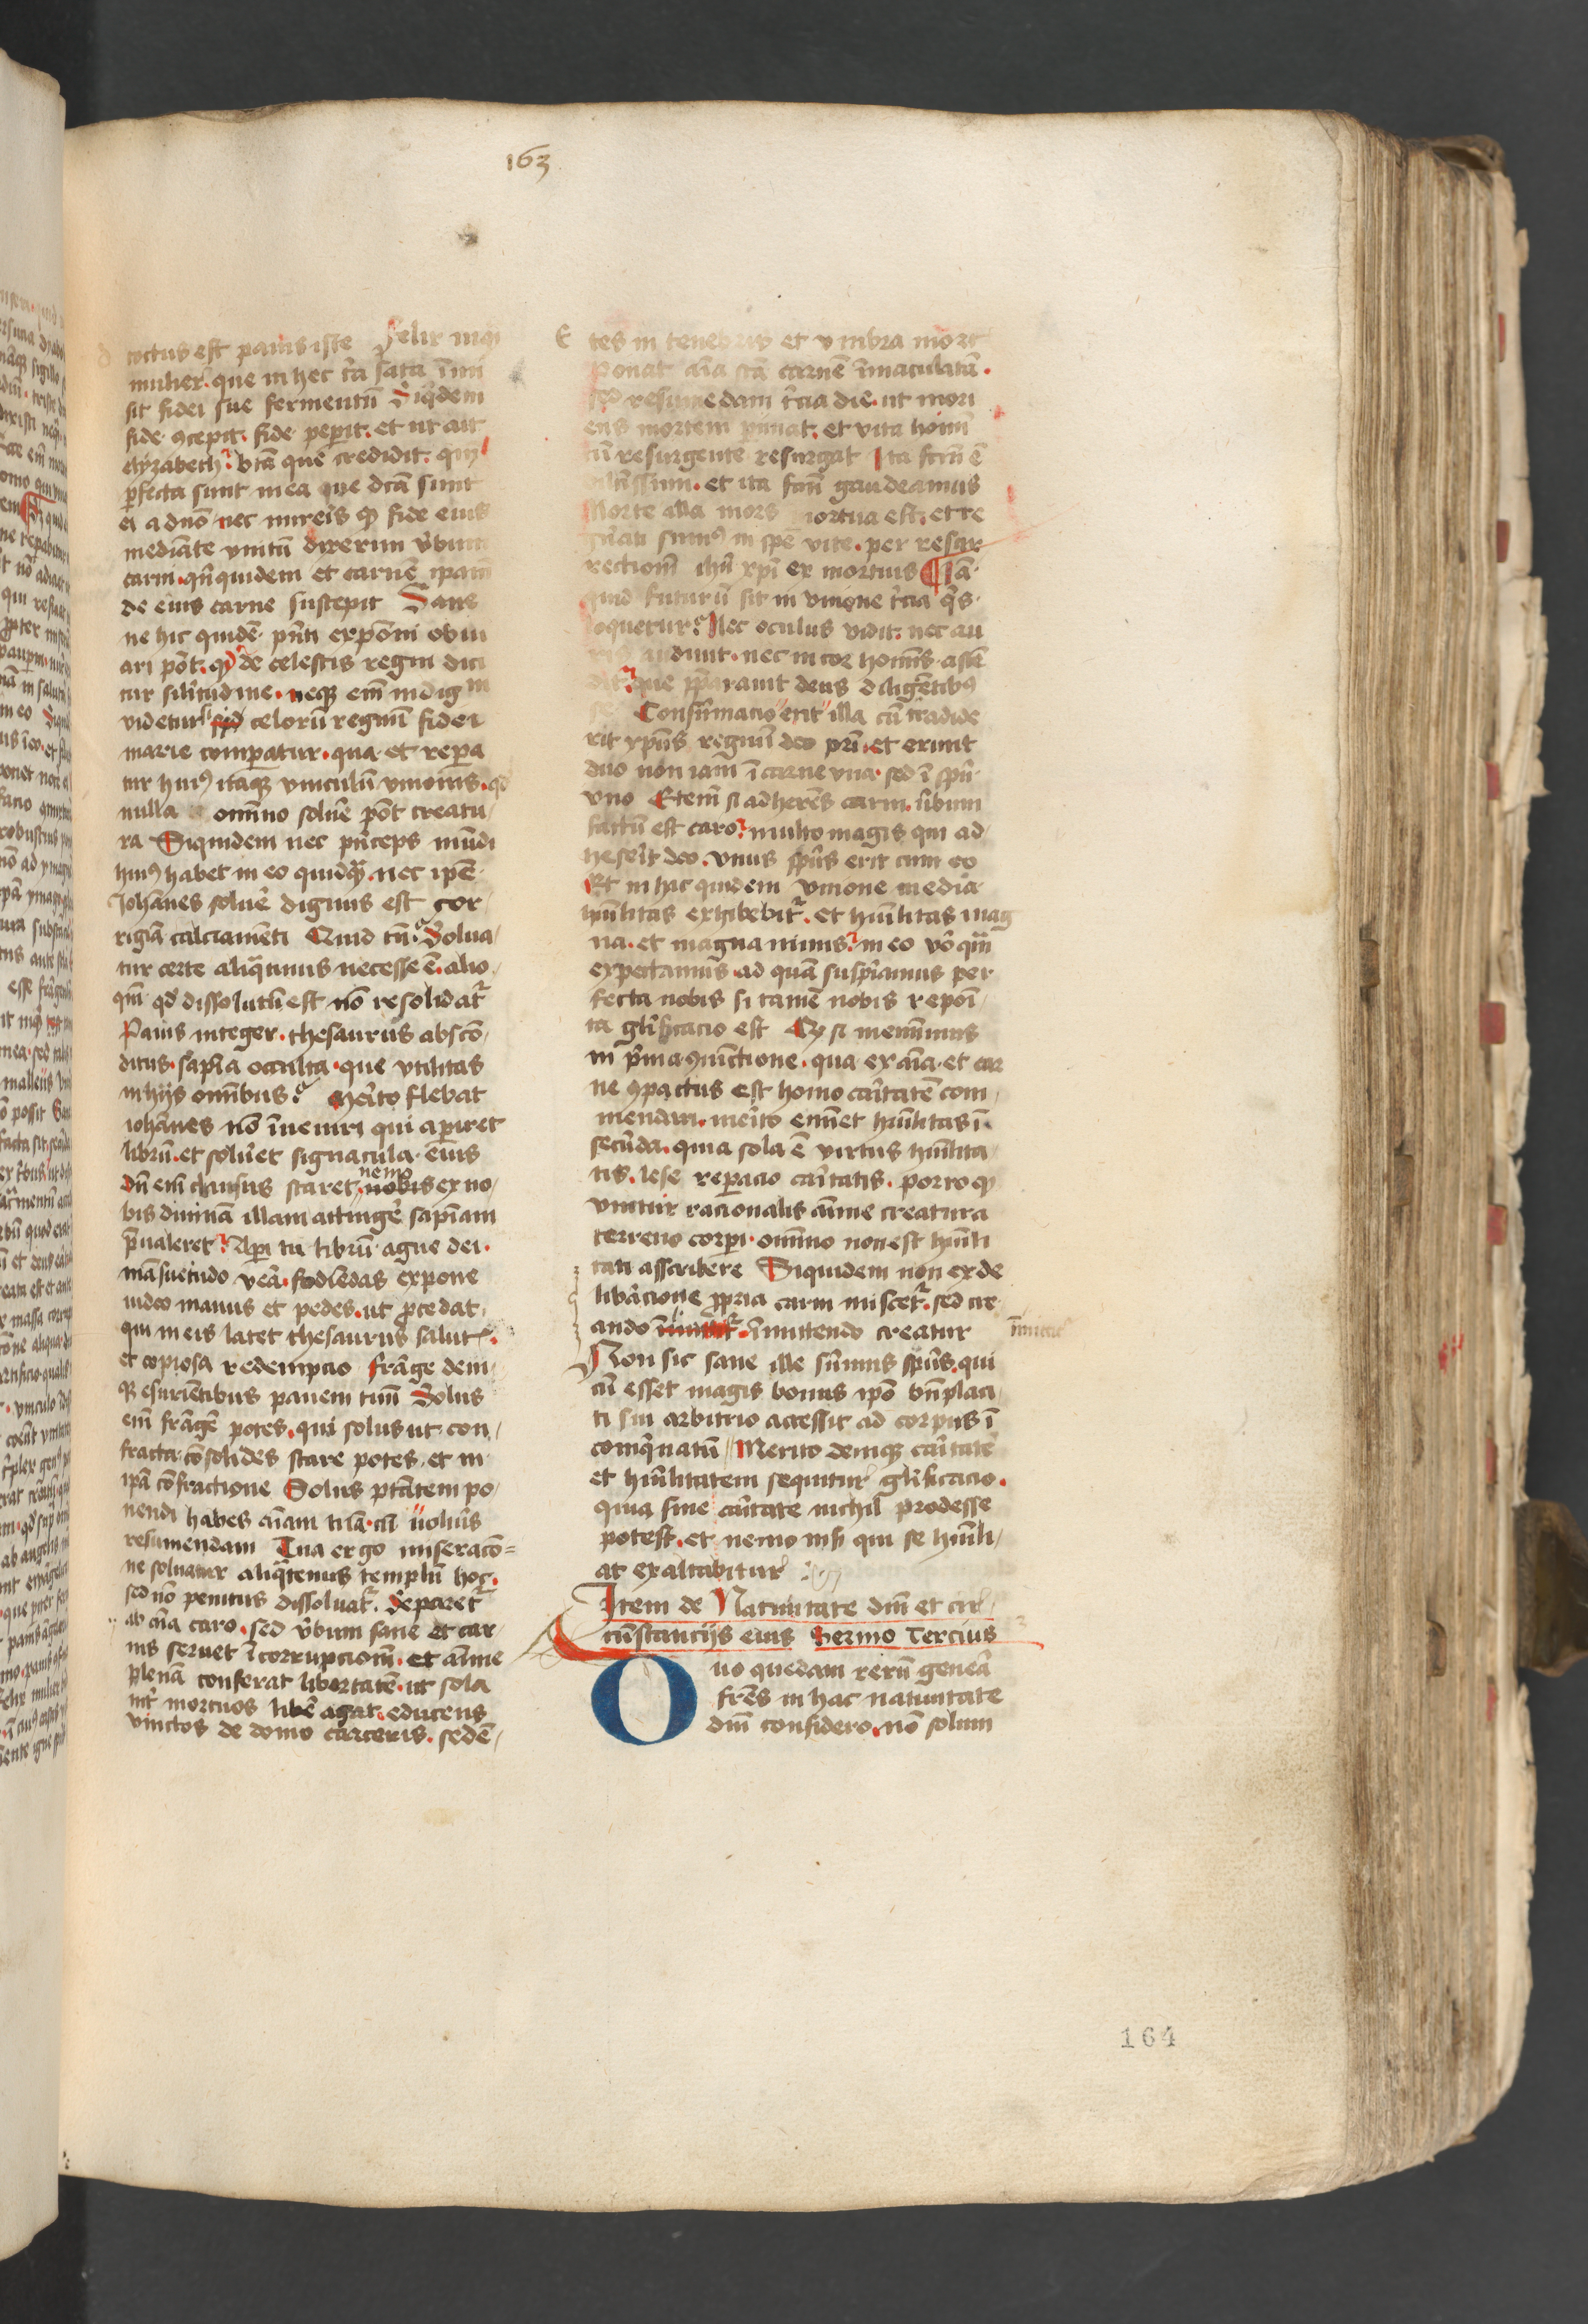 163
coctus est panis iste Felix inq̃
mulier. que in hec t̾ia sata i̅mi
sit fidei sue fermentu̅ Siq̾dem
fide ꝯcepit. fide peperit. et ut ait
elyzabeth. bt̅a que credidit. qm̅
ꝑfecta sunt in ea que dc̅a sunt
ei a dn̅o nec mireris ꝙ fide eius
mediante vnitu̅ dixerim v̾bum
carni. qn̅quidem et carne̅ ipam
de eius carne suscepit Sane
ne hic quide̅ pn̅ti exposi̅ obui
ari po̅t. ꝙ de celestis regni dici
tur sil̾itudine. neqꝫ em̅ indign
videtur si celoru̅ regnu̅ fidei
marie comꝑatur. qua et reꝑa
tur huiꝰ itaqꝫ vinculu̅ vnionis. qd̾
nulla omnino solue̾ po̅t creatu
ra Siquidem nec p̾nceps mu̅di
huiꝰ habet in eo quidq̃ nec ipe̅
Joha̅nes solue̾ dignus est cor
rigia̅ calciamenti Quid tn̅. Solua
tur certe aliq̃tinus necesse e̅. alio
qm̅ qd̾ dissolutu̅ est no̅ resolidat̾
Panis integer. thesaurus absco̅
ditus. sapi̅a occulta. que vtilitas
in hijs omnibus. Merito flebat
ioha̅nes no̅ inueniri qui aperiret
libru̅. et solu̾et signacula eius
du̅ em̅ clausus staret. nemo ex no
bis diuina̅ illam attinge̾ sapi̅am
p̾ualeret. Aperi tu libru̅ agne dei.
ma̅suetudo vera. fodiendas expone
iudeo manus et pedes. ut ꝓcedat
qui in eis latet thesaurus salut̾.
et copiosa redempcio fra̅ge deni
qꝫ esurientibus panem tuu̅ Solus
em̅ frange̾ potes. qui solus ut con
fracta co̅solides stare potes. et in
ipa̅ co̅fractione Solus pt̅atem po
nendi habes ai̅am tua̅. cu̅ uolu̾is
resumendam Tua ergo miseraco̅
ne soluatur aliq̃tenus templu̅ hoc.
sed no̅ penitus dissoluat̾. Separet̾
ab ai̅a caro. sed v̾bum sane et car
nis seruet i̅corrupciom̅. et ai̅me
plena̅ conferat libertate̅. ut sola
int̾ mortuos libe̾ agat. educens
vinctos de domo carceris. sede̅
tes in tenebris et vmbra mort̾
Ponat ai̅a sc̅a̅ carne̅ i̅maculata̅.
sed resumedam t̾cia die. ut mori
ens mortem ꝑimat. et vita homi̅
cu̅ resurgente resurgat Ita fc̅m e̅
et ita fc̅m gaudeamus
Morte illa mors mortua est. et re
gn̾ati sumꝰ in spe̅ vite. per resur
rectiom̅ ihu̅ xpi̅ ex mortuis Ia̅
quid futuru̅ sit in vnione t̾cia q̾s
loquetur. Nec oculus vidit. nec au
ris audiuit. nec in cor hominis asce̅
dit. que p̾parauit deus diligentibꝰ
se Consu̅macio erit illa cu̅ tradide
rit xpu̅s regnu̅ deo pr̅i. et erunt
duo non iam i̅ carne vna. sed i̅ spu̅
vno Etem̅ si adherens carni. v̾bum
factu̅ est caro. multo magis qui ad
heserit deo. vnus spu̅s erit cum eo
Et in hac quidem vnione media
hu̅ilitas exhibebit̾. et hu̅ilitas mag
na. et magna nimis. in eo vo̾ qua̅
expectamus. ad qua̅ suspiramus per
fecta nobis si tame̅ nobis reposi̅
ta gl̾ificacio est Qz si meminimus
in p̾ma ꝯiu̅ctione. qua ex ai̅a. et car
ne ꝯpactus est homo caritate̅ com
mendari. merito eminet hu̅ilitas i̅
secunda. quia sola e̅ virtus hu̅ilita
tis. lese reparacio caritatis. porro ꝙ
vnitur racionalis ai̅me creatura
terreno corpi. omnino non est hu̅ili
tati asscribere Siquidem non ex de
liberacione ꝓpria carni miscet̾. sed cre
ando i̅mittendo creatur
Non sic sane ille su̅mus spu̅s. qui
cu̅ esset magis bonus ipo̅ bn̅placi
ti sui arbitrio accessit ad corpus i̅
coinq̾natu̅ Merito deniqꝫ caritate̅
et hu̅ilitatem sequitur gl̾ificacio.
quia sine caritate nichil prodesse
potest. et nemo nisi qui se hu̅ili
at exaltabitur
Item de Natiuitate dn̅i et cir
cu̅stancijs eius Sermo Tercius
Duo quedam reru̅ genera
fr̅es in hac natiuitate
dn̅i considero. no̅ solum
164